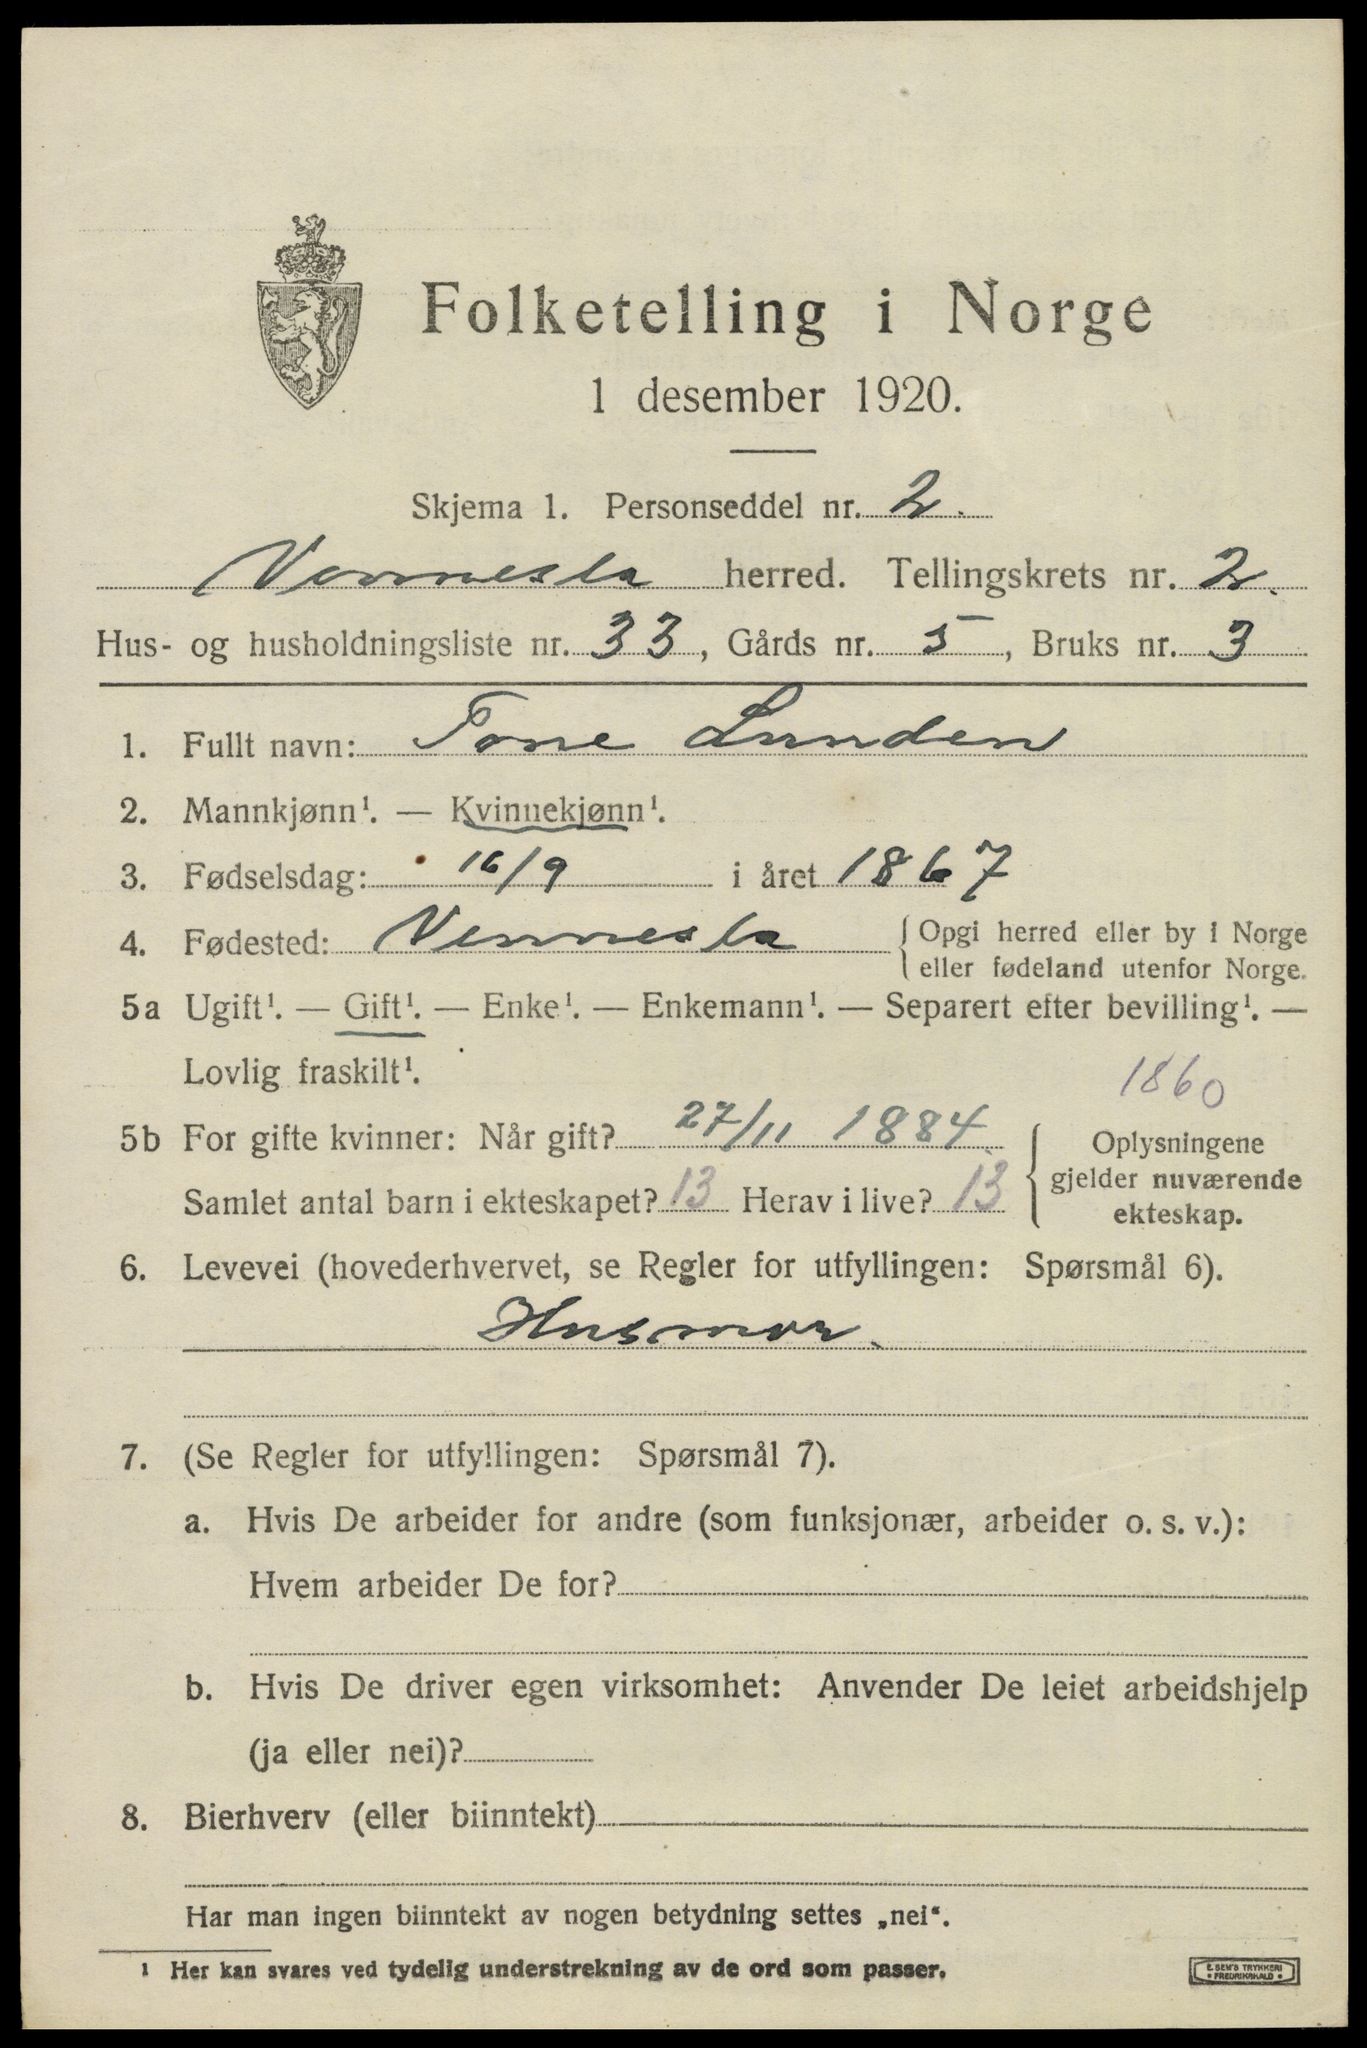 Folketelling i Norge
1 desember 1920.
Skjema 1. Personseddel nr. 2.
Vennesla herred. Tellingskrets nr. 2.
Hus- og husholdningsliste nr. 33, Gårds nr. 5, Bruks nr. 3
1. Fullt navn: Tone Lunden
2. Mannkjønn¹. — Kvinnekjønn¹.
3. Fødselsdag: 16/9 i året 1867
4. Fødested: Vennesla { Opgi herred eller by i Norge
eller fødeland utenfor Norge.
5a Ugift¹. — Gift¹. — Enke¹. — Enkemann¹. — Separert efter bevilling¹. —
Lovlig fraskilt¹.
1860
5b For gifte kvinner: Når gift? 27/11 1884. { Oplysningene
gjelder nuværende
ekteskap.
Samlet antal barn i ekteskapet? 13 Herav i live? 13
6. Levevei (hovederhvervet, se Regler for utfyllingen: Spørsmål 6).
Husmor.
7. (Se Regler for utfyllingen: Spørsmål 7).
a. Hvis De arbeider for andre (som funksjonær, arbeider o. s. v.):
Hvem arbeider De for?
b. Hvis De driver egen virksomhet: Anvender De leiet arbeidshjelp
(ja eller nei)?
8. Bierhverv (eller biinntekt)
Har man ingen biinntekt av nogen betydning settes „nei“.
¹ Her kan svares ved tydelig understrekning av de ord som passer.
E. SEM'S TRYKKERI
• FREDRIKSHALD •